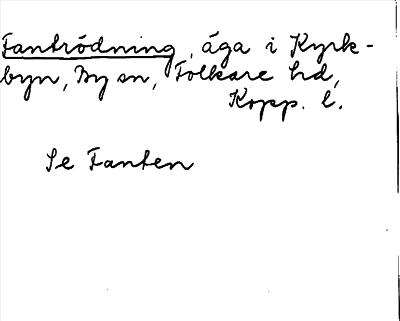 Fantrödning, äga i Kyrk-
byn, By sn, Folkare hd,
Kopp. l.
Se Fanten